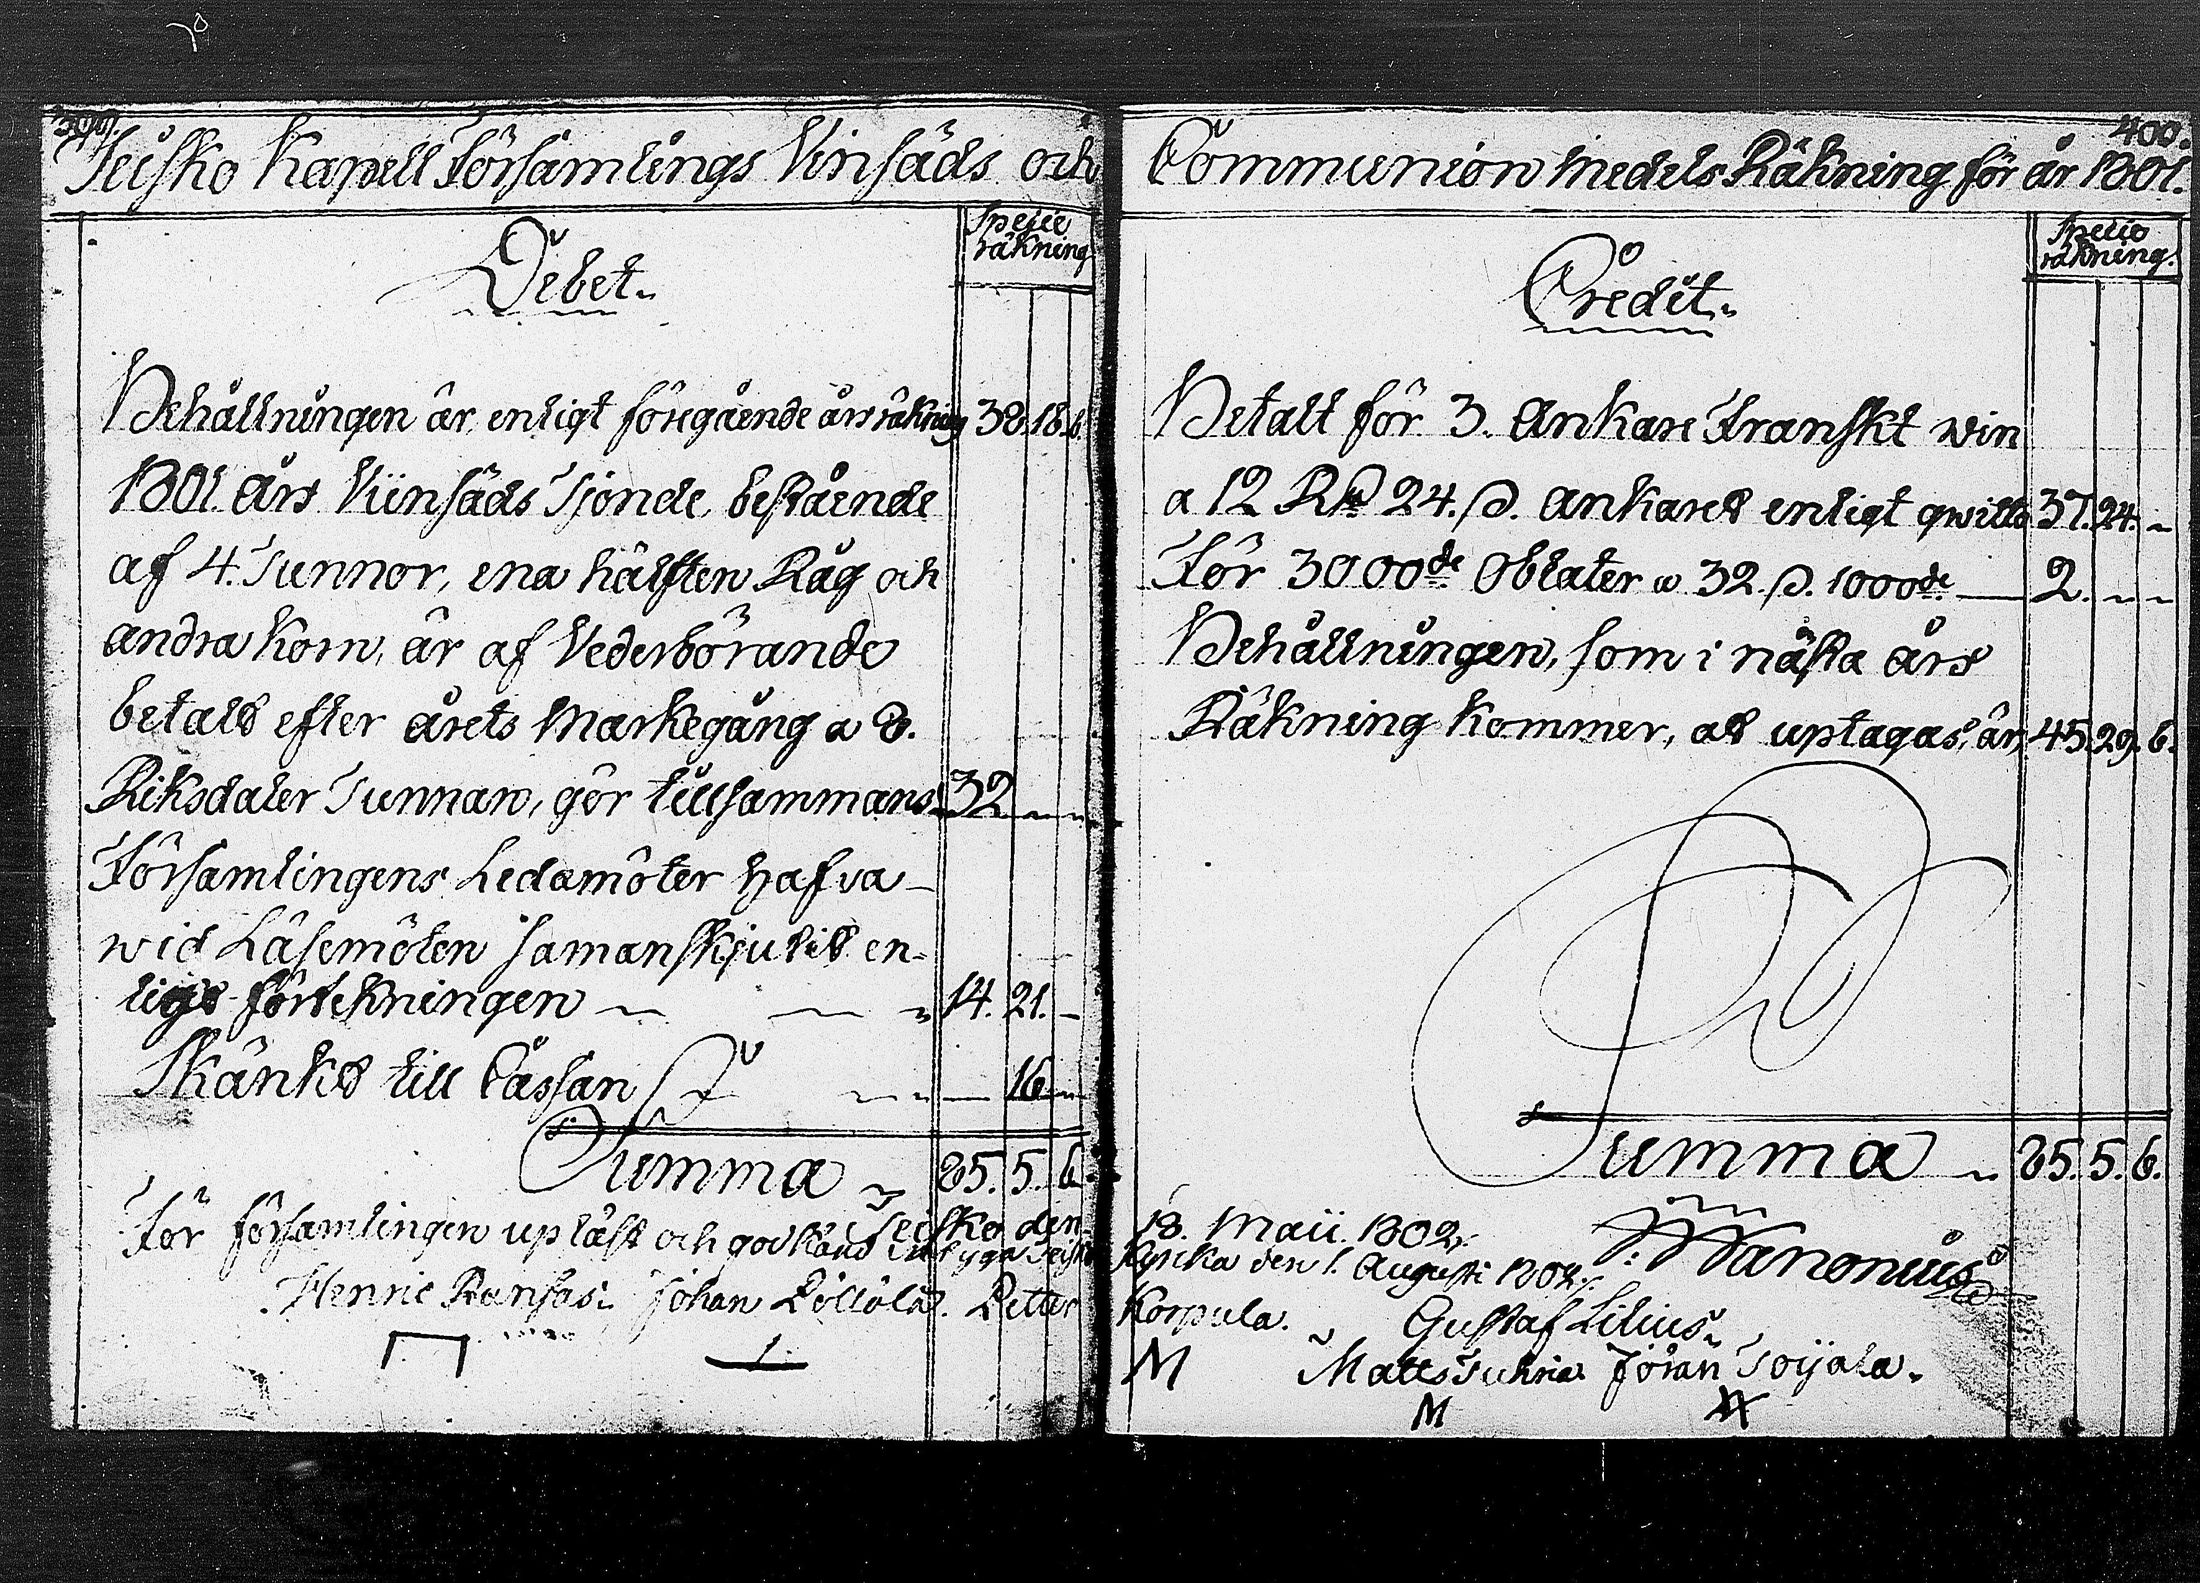 399.
Teisko Kapell Församlings Vinsäds och
Debet.
Specie
räkning
Behållningen är, enligt föregående års räkning 38. 18. 6.
1801. Års Viinsäds Tjonde, bestående
af 4. Tunnor, ena hälften Råg och
andra Korn, är af Vederbörande
betald efter årets Markegång a 8.
Riksdaler Tunnan, gör tillsammans 32 " "
Församlingens Ledamöter hafva
wid Läsemöten samanskjutit en-
ligt förtekningen 14. 21. -
Skänkt till Cassan — 16 -
Summa 85. 5. 6.
Teisko den
För församlingen upläst och godkänd intyga Teisko
Henric Johan Petter
400.
Communion Medels Räkning för år 1801.
Credit.
Specie
räkning.
Betalt för 3. Ankare Franskt win
a 12 Rd 24. s. Ankaret enligt qwitto 37. 24. -
För 3000de Oblater a 32. s. 1000de — 2. - -
Behållningen, som i nästa års
Räkning kommer, at uptagas, är 45. 29. 6.
Summa 85. 5. 6.
18. Maii 1802.
Kyrka den 1. Augusti 1802.
Korpula.
Gustaf Lilius.
M
Matts Jöran Toijala.
M